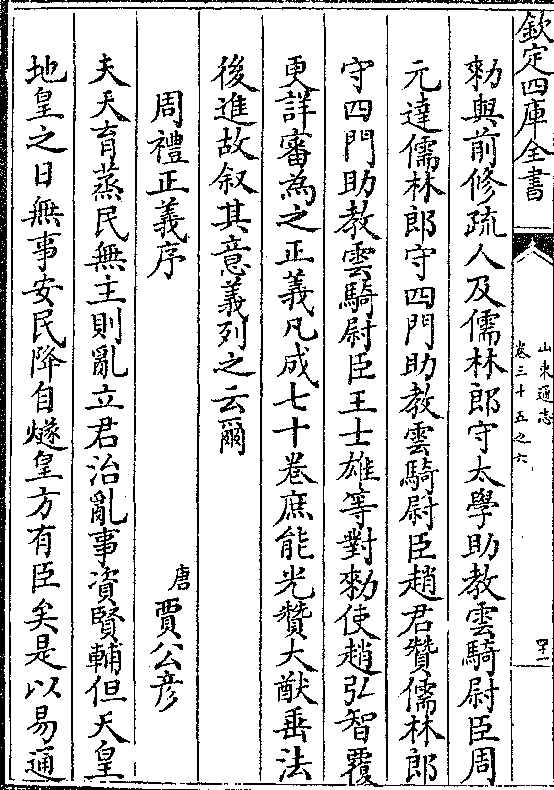 欽定四庫全書
山東通志
卷三十五之六
四十一
勅與前修疏人及儒林郎守太學助教雲騎尉臣周
元達儒林郎守四門助教雲騎尉臣趙君贊儒林郎
守四門助教雲騎尉臣王士雄等對勅使趙弘智覆
更詳審為之正義凡成七十卷庶能光贊大猷垂法
後進故叙其意義列之云爾
周禮正義序
唐賈公彦
夫天育蒸民無主則亂立君治亂事資賢輔但天皇
地皇之日無事安民降自燧皇方有臣矣是以易通